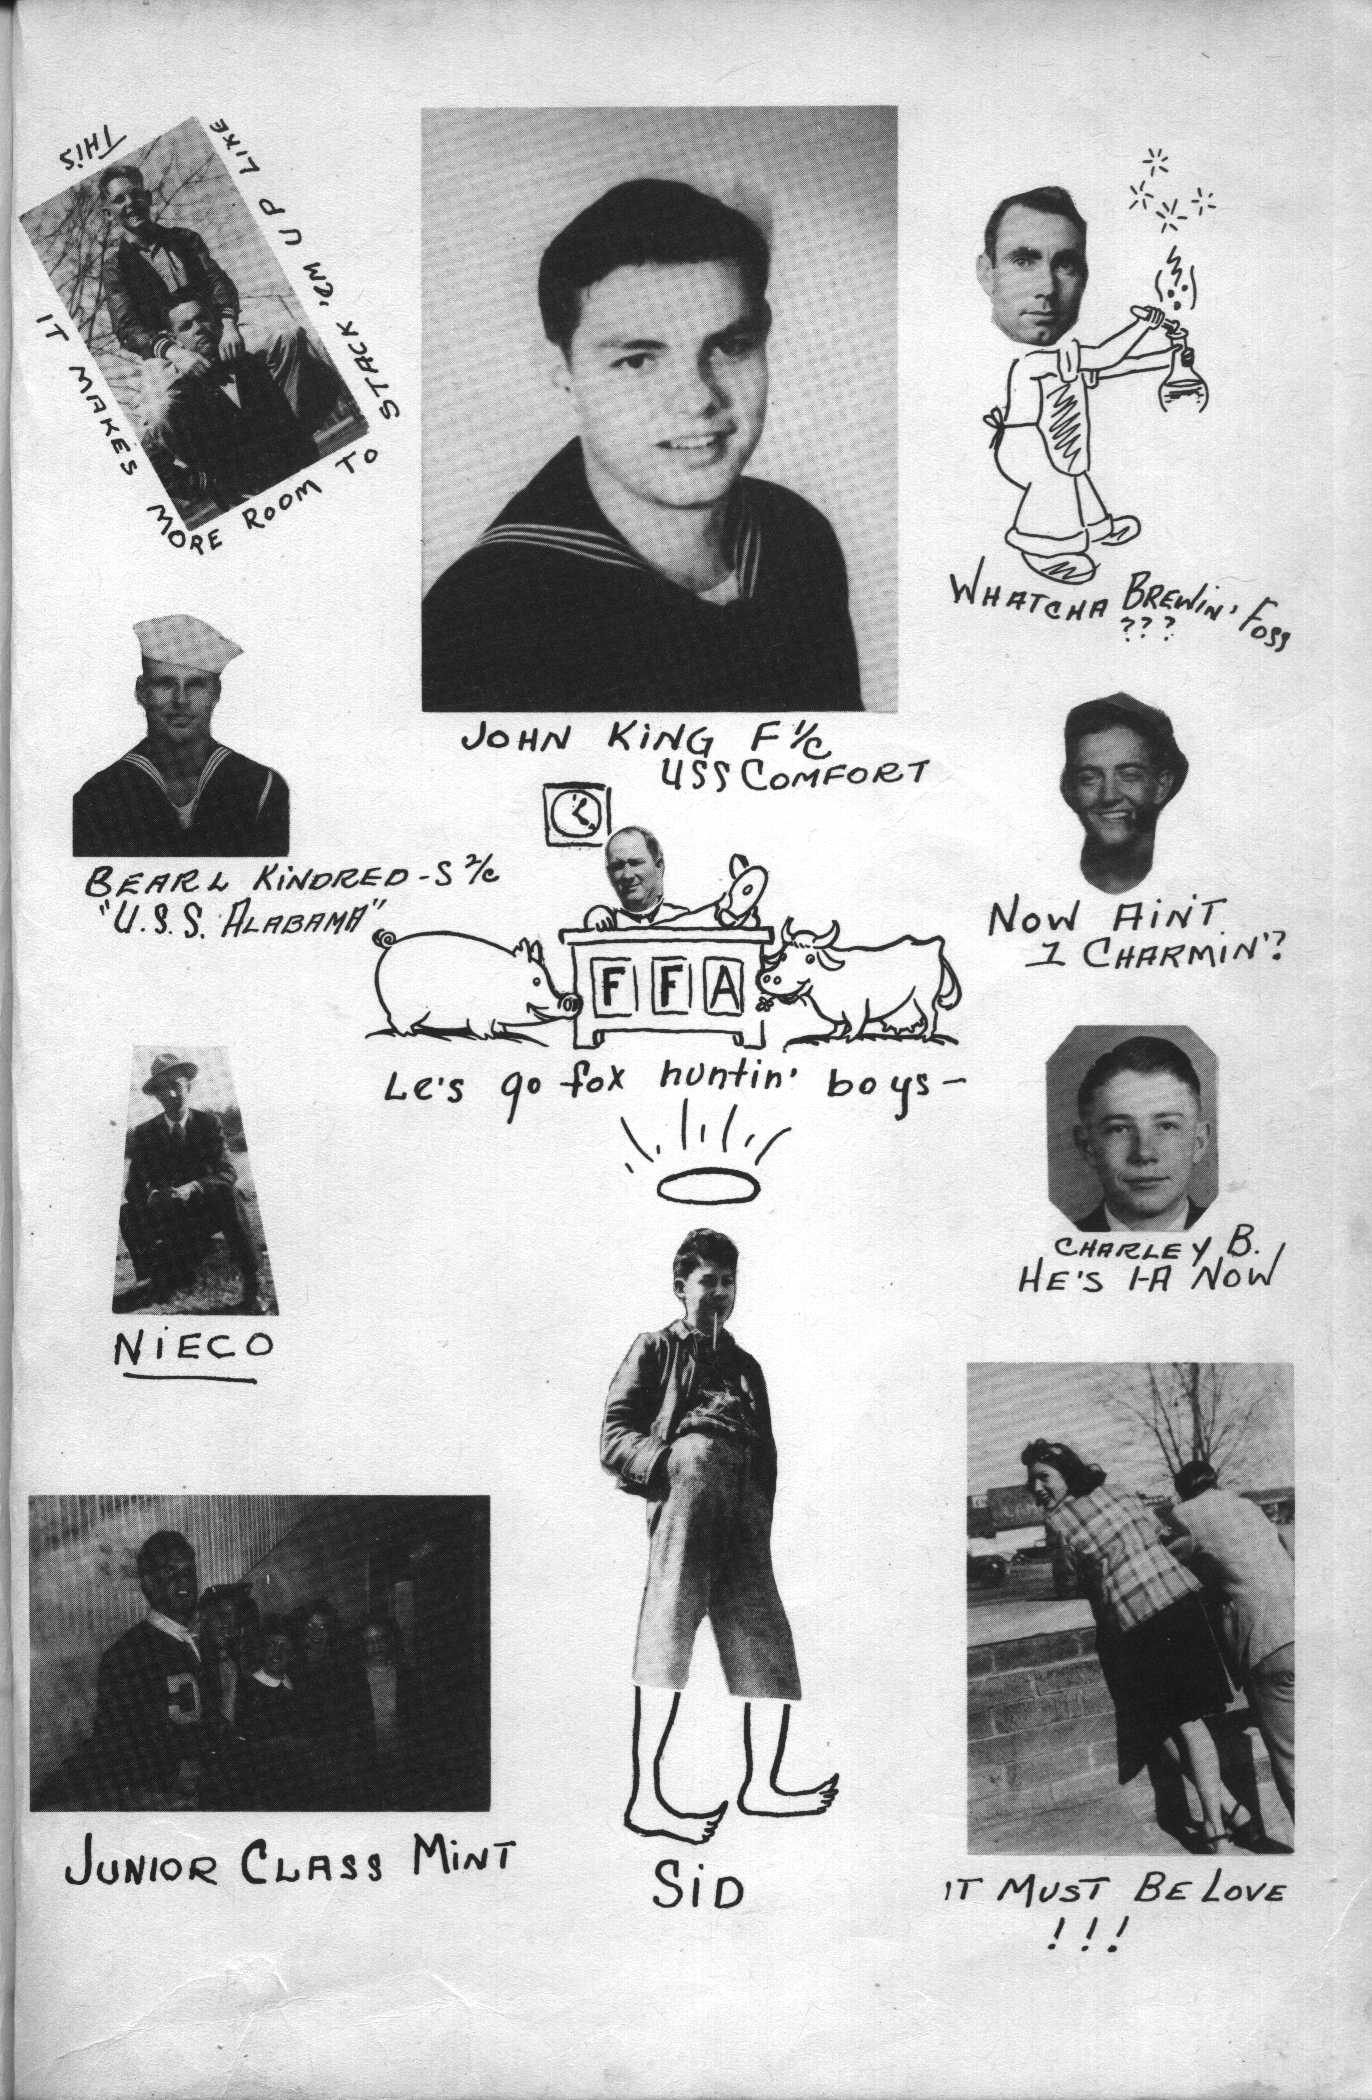 IT MAKES
MORE ROOM TO
STACK 'EM UP LIKE
THIS
WHATCHA BREWIN' FOSS
???
JOHN KING F 1/C
USS COMFORT
BEARL KINDRED - S 2/C
"U.S.S. ALABAMA"
NOW AIN'T
I CHARMIN'?
F F A
Le's go fox huntin' boys -
CHARLEY B.
HE'S 1-A NOW
NIECO
C
JUNIOR CLASS MINT
SID
IT MUST BE LOVE
!!!